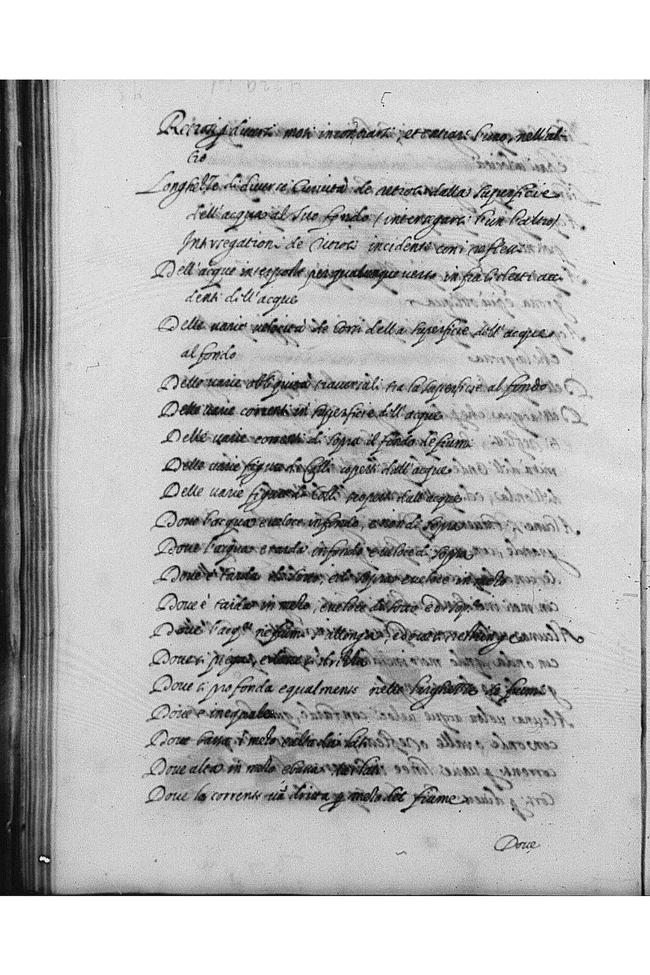 5
Retrosi p diversi moti incontrarsi, et entrare l'uno nell'al-
tro
Longhezze di diverse de retrosi dalla superficie
dell'acqua al suo fondo
Intersegationi de retrosi incidenti con i reflessi
Dell'acque interposte per qualunque verso infra
denti dell'acque
Delle varie velocità de corsi della superficie dell'acque
al fondo
Delle varie obliquità traversali fra la superficie al fondo
Delle varie correnti in superficie dell'acque
Delle varie correnti di sopra il fondo de fiumi
Delle varie figure de Colli coperti dall'acque
Delle varie figure de Colli scoperti dall'acque
Dove l'acqua è veloce in fondo, e non di sopra
Dove l'acqua è tarda in fondo e veloce di sopra
Dove è tarda di sotto, e di sopra e veloce in mezo
Dove è tarda in mezo, e veloce di sotto e di sopra
Dove l'acq.ᵃ ne fiumi
Dove si piega, e dove si
Dove si profonda equalmente nelle larghezze de fiumi
Dove è ineguale
Dove bassa in mezo e alta dai lati
Dove alta in mezo e bassa
Dove la corrente va dritta p mezo del fiume
Dove